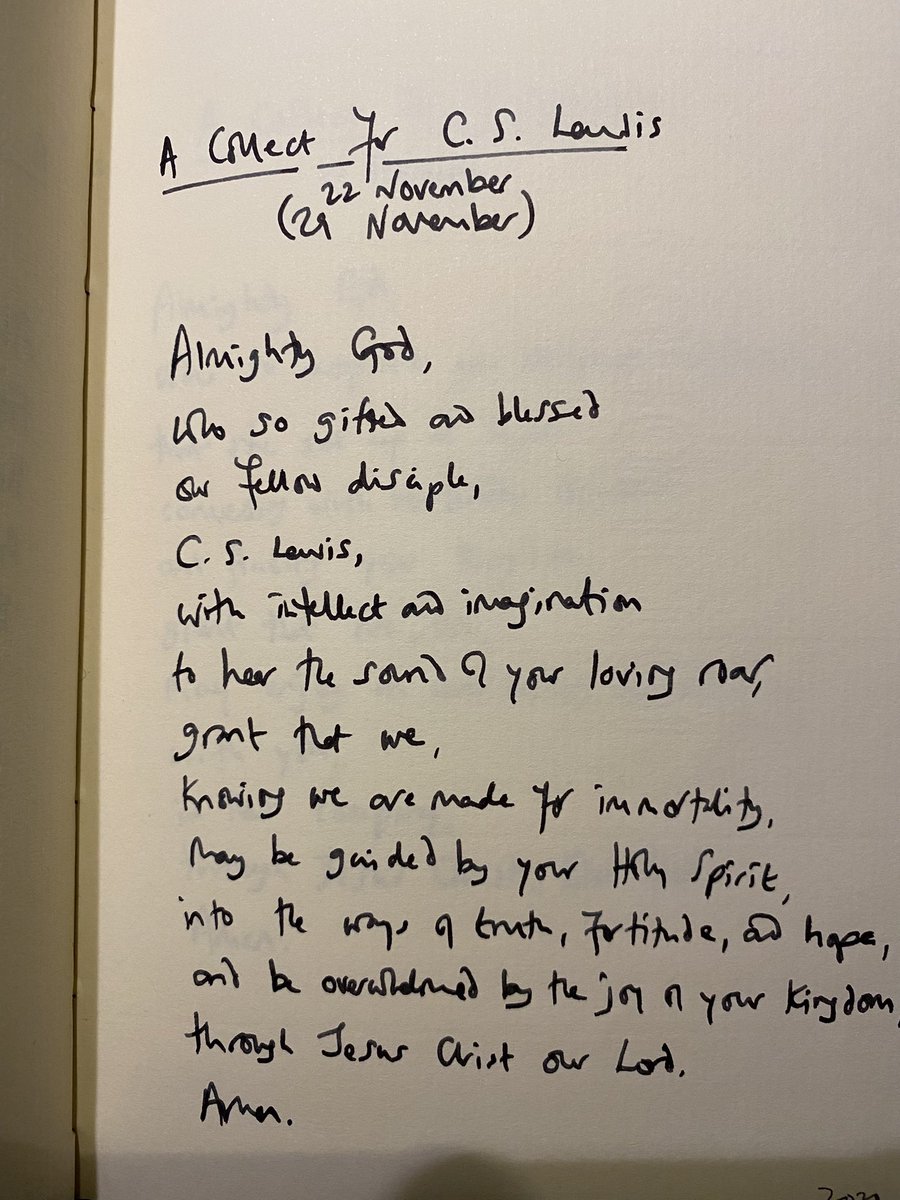 A Collect for C. S. Lewis
22 November
(29 November)
Almighty God,
who so gifted and blessed
our fellow disciple,
C. S. Lewis,
with intellect and imagination
to hear the sound of your loving roar,
grant that we,
knowing we are made for immortality,
may be guided by your Holy Spirit,
into the ways of truth, fortitude, and hope,
and be overwhelmed by the joy of your Kingdom,
through Jesus Christ our Lord.
Amen.